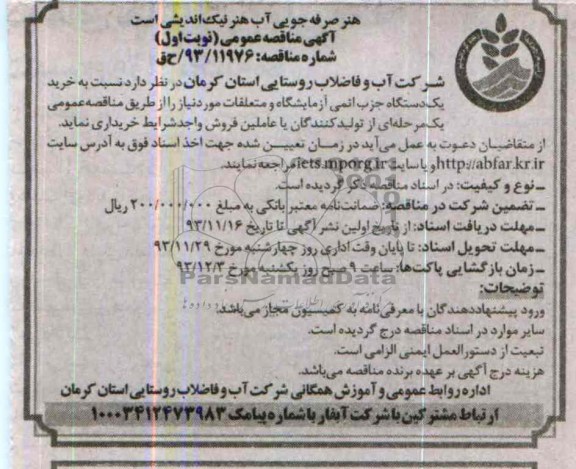 هنر صرفه جویی آب هنر نیک اندیشی است
آگهی مناقصه عمومی (نوبت اول)
شماره مناقصه: ۹۳/۱۱۹۷۶/ح‌ق
شرکت آب و فاضلاب روستایی استان کرمان در نظر دارد نسبت به خرید
یک‌دستگاه جزب اتمی آزمایشگاه و متعلقات مورد نیاز را از طریق مناقصه عمومی
یک‌مرحله‌ای از تولید کنندگان یا عاملین فروش واجد شرایط خریداری نماید.
از متقاضیان دعوت به عمل می‌آید در زمان تعیین شده جهت اخذ اسناد فوق به آدرس سایت
http://abfar.kr.ir و یا سایت iets.mporg.ir مراجعه نمایند.
ـ نوع و کیفیت: در اسناد مناقصه ذکر گردیده است.
ـ تضمین شرکت در مناقصه: ضمانت‌نامه معتبر بانکی به مبلغ ۲۰۰/۰۰۰/۰۰۰ ریال
ـ مهلت دریافت اسناد: از تاریخ اولین نشر آگهی تا تاریخ ۹۳/۱۱/۱۶
ـ مهلت تحویل اسناد: تا پایان وقت اداری روز چهارشنبه مورخ ۹۳/۱۱/۲۹
ـ زمان بازگشایی پاکت‌ها: ساعت ۹ صبح روز یکشنبه مورخ ۹۳/۱۲/۳
ParsNamadData
توضیحات:
ورود پیشنهاددهندگان با معرفی نامه به کمیسیون مجاز می‌باشد.
سایر موارد در اسناد مناقصه درج گردیده است.
تبعیت از دستورالعمل ایمنی الزامی است.
هزینه درج آگهی بر عهده برنده مناقصه می‌باشد.
اداره روابط عمومی و آموزش همگانی شرکت آب و فاضلاب روستایی استان کرمان
ارتباط مشترکین با شرکت آبفار با شماره پیامک ۱۰۰۰۳۴۱۲۴۷۳۹۸۳